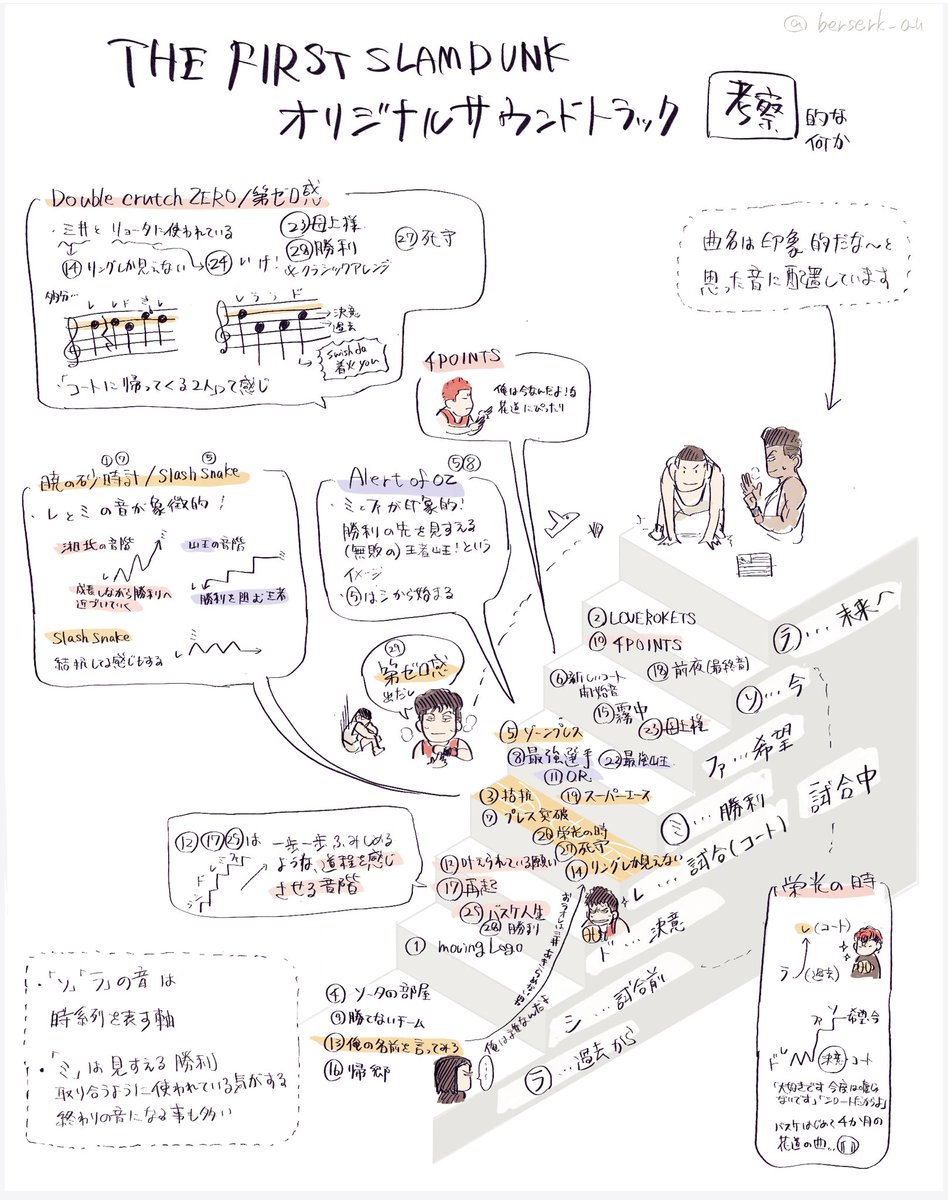 @berserk_au
THE FIRST SLAMDUNK
オリジナルサウンドトラック
考察
的な
何か
Double crutch ZERO/第ゼロ感
・三井とリョータに使われている
⑭リングしか見えない→㉔いけ!
㉓母上様
㉘勝利
&クラシックアレンジ
㉗死守
多分…
レ レ
レ ラ ラ ド
→決意
→過去
swish da
着火you
「コートに帰ってくる2人」って感じ
曲名は印象的だな〜と
思った音に配置しています
4POINTS
俺は今なんだよ!な
花道にぴったり
① ⑦ ⑤
暁の砂時計/Slash Snake
・レとミの音が象徴的!
湘北の音階
ミ
レ
成長しながら勝利へ
近づいていく
山王の音階
ミ
勝利を阻む王者
Slash Snake
拮抗してる感じもする
レ
ミ
⑤⑧
Alert of OZ
・ミとファが印象的!
勝利の先を見すえる
(無敗の)王者山王!という
イメージ
・⑤はシから始まる
㉙
第ゼロ感
出だし
②LOVEROKETS
⑩4POINTS
⑥新しいコート
開始音
⑱前夜(最終音)
⑮霧中
㉓母上様
⑤ゾーンプレス
⑧最強選手
㉒最強山王
⑪OR
③拮抗
⑲スーパーエース
⑦プレス突破
㉖栄光の時
㉗死守
⑭リングしか見えない
⑫叶えられている願い
⑰再起
㉕バスケ人生
㉘勝利
①moving Logo
④ソータの部屋
⑨勝てないチーム
⑬俺の名前を言ってみろ
⑯帰郷
俺は誰なんだよ
おうオレは三井
ラ…未来へ
ソ…今
ファ…希望
ミ…勝利
レ…試合(コート)
ド…決意
シ…試合前
ラ…過去から
試合中
⑫⑰㉕は
一歩一歩ふみしめる
ような、道程を感じ
させる音階
ファ
ミ
レ
ド
シ
ラ
・「ソ」「ラ」の音は
時系列を表す軸
・「ミ」は見すえる勝利
取り合うように使われている気がする
終わりの音になる事も多い
栄光の時
レ(コート)
ラ(過去)
ソ
ファ
希望・今
ド レ
決意・コート
「大好きです 今度は嘘じゃ
ないです」
バスケはじめて4か月の
花道の曲…